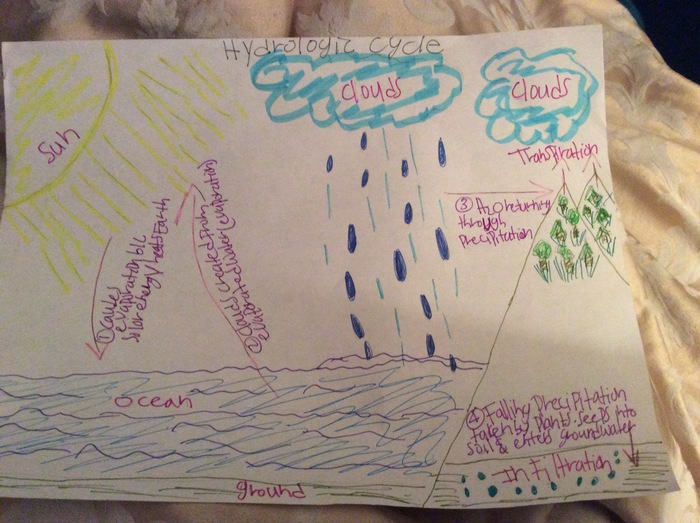 Hydrologic Cycle
Clouds
Clouds
Sun
Transpiration
① causes
evaporation b/c
solar energy heats Earth
② Clouds created from
evaporated water (evaporation)
③ H2O returns
through
precipitation
Ocean
④ Falling precipitation
taken by plants. Seeps into
soil & enters groundwater
Infiltration
ground